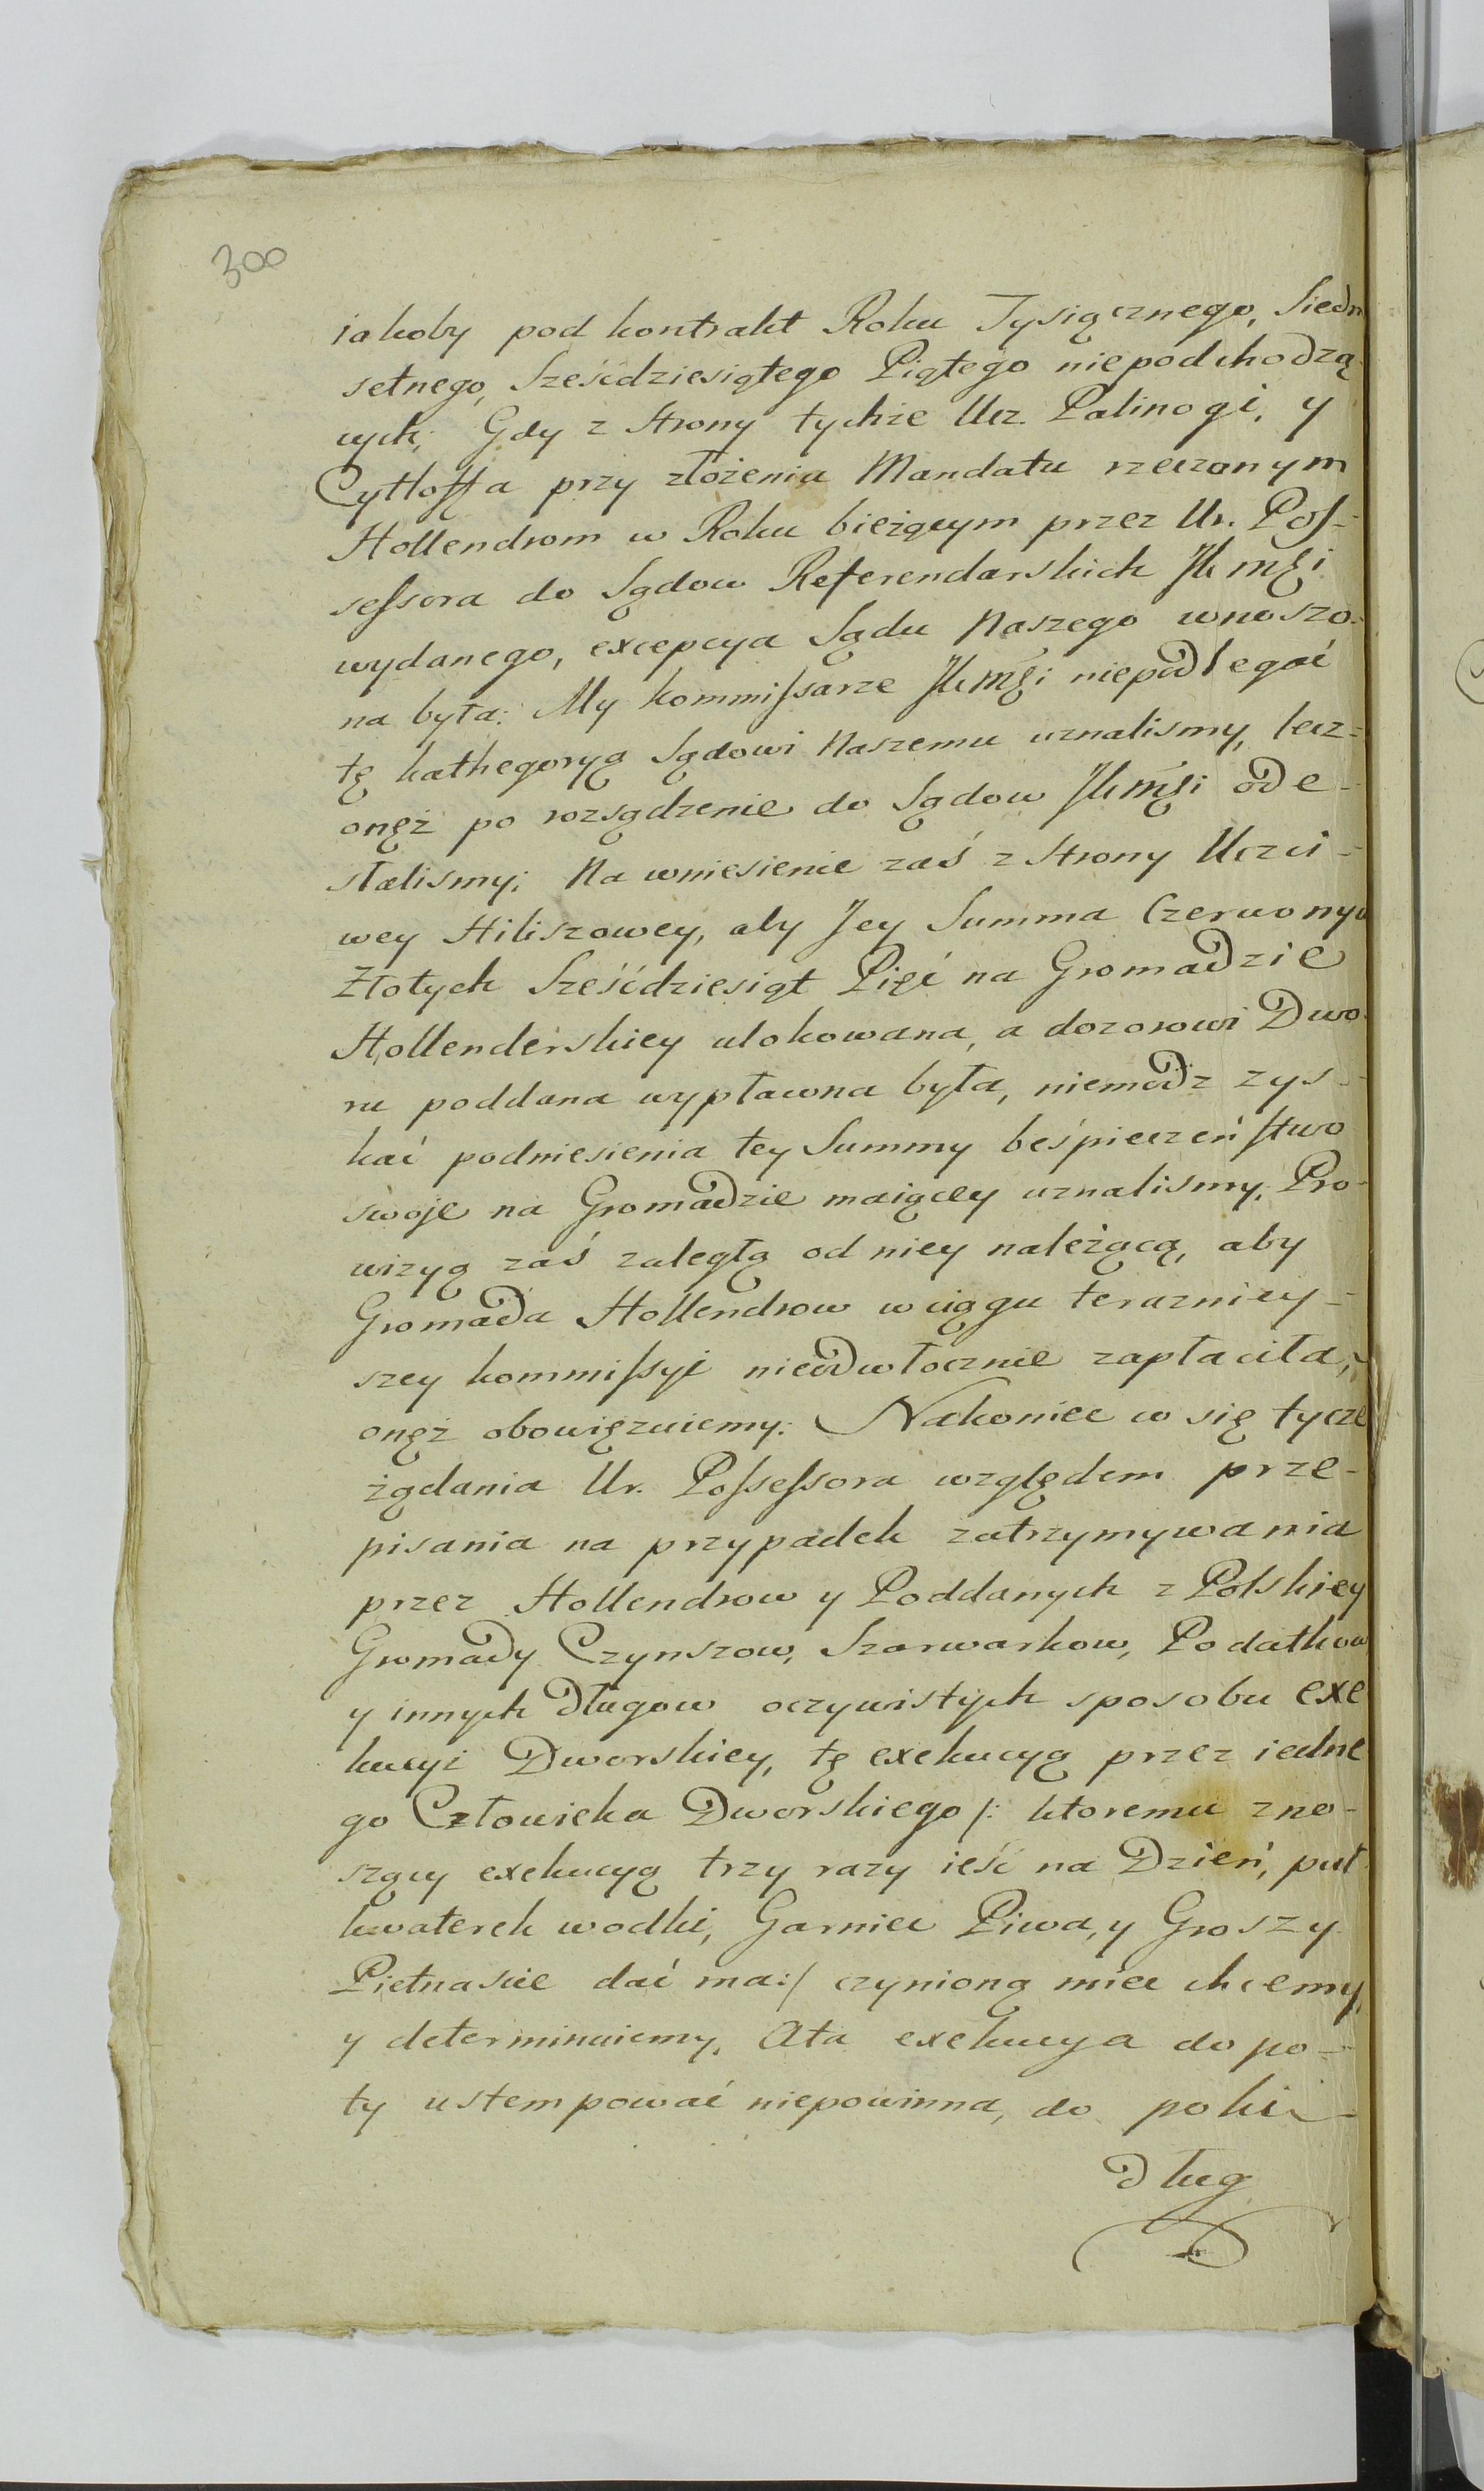 300
iakoby pod kontrakt Roku Tysiącznego, Siedm
setnego, Sześćdziesiątego Piątego niepodchodzą
cych; Gdy z strony tychże Ucz. Palinogi, y
Cytloffa przy złożenia Mandatu rzeczonym
Hollendrom w Roku bieżącym przez Ur. Pos-
sessora do Sądow Referendarskich JKMści
wydanego, excepcya Sądu Naszego wnoszo-
na była: My kommissarze JKMści niepodlegać
tę kathegoryą Sądowi Naszemu uznalismy, lecz
onęż po rozsądzenie do Sądow JKMści ode-
słalismy; Na wniesienie zaś z strony Uczci-
wey Hiliszowey, aby Jey Summa Czerwonych
Złotych Sześćdziesiąt Pięć na Gromadzie
Hollenderskiey ulokowana, a dozorowi Dwo-
ru poddana wypłacona była, niemodz zys-
kać podniesienia tey Summy beśpieczeństwo
swoje na Gromadzie maiącey uznalismy; Pro-
wizyą zaś zaległą od niey należącą, aby
Gromada Hollendrow w ciągu terazniey-
szey kommissyi nieodwłocznie zapłaciła,
onęż obowięzuiemy: Nakoniec co się tycze
żądania Ur. Possessora względem prze-
pisania na przypadek zatrzymywania
przez Hollendrow y Poddanych z Polskiey
Gromady Czynszow, Szarwarkow, Podatkow
y innych długow oczywistych sposobu exe
kucyi Dworskiey, tę exekucyą przez iedne
go Człowieka Dworskiego /: ktoremu zno-
szący exekucyą trzy razy ieść na Dzień, puł
kwaterek wodki, Garniec Piwa, y Groszy
Pietnascie dać ma:/ czynioną miec chcemy,
y determinuiemy, Ata exekucya do po-
ty ustempować niepowinna, do poki
dług